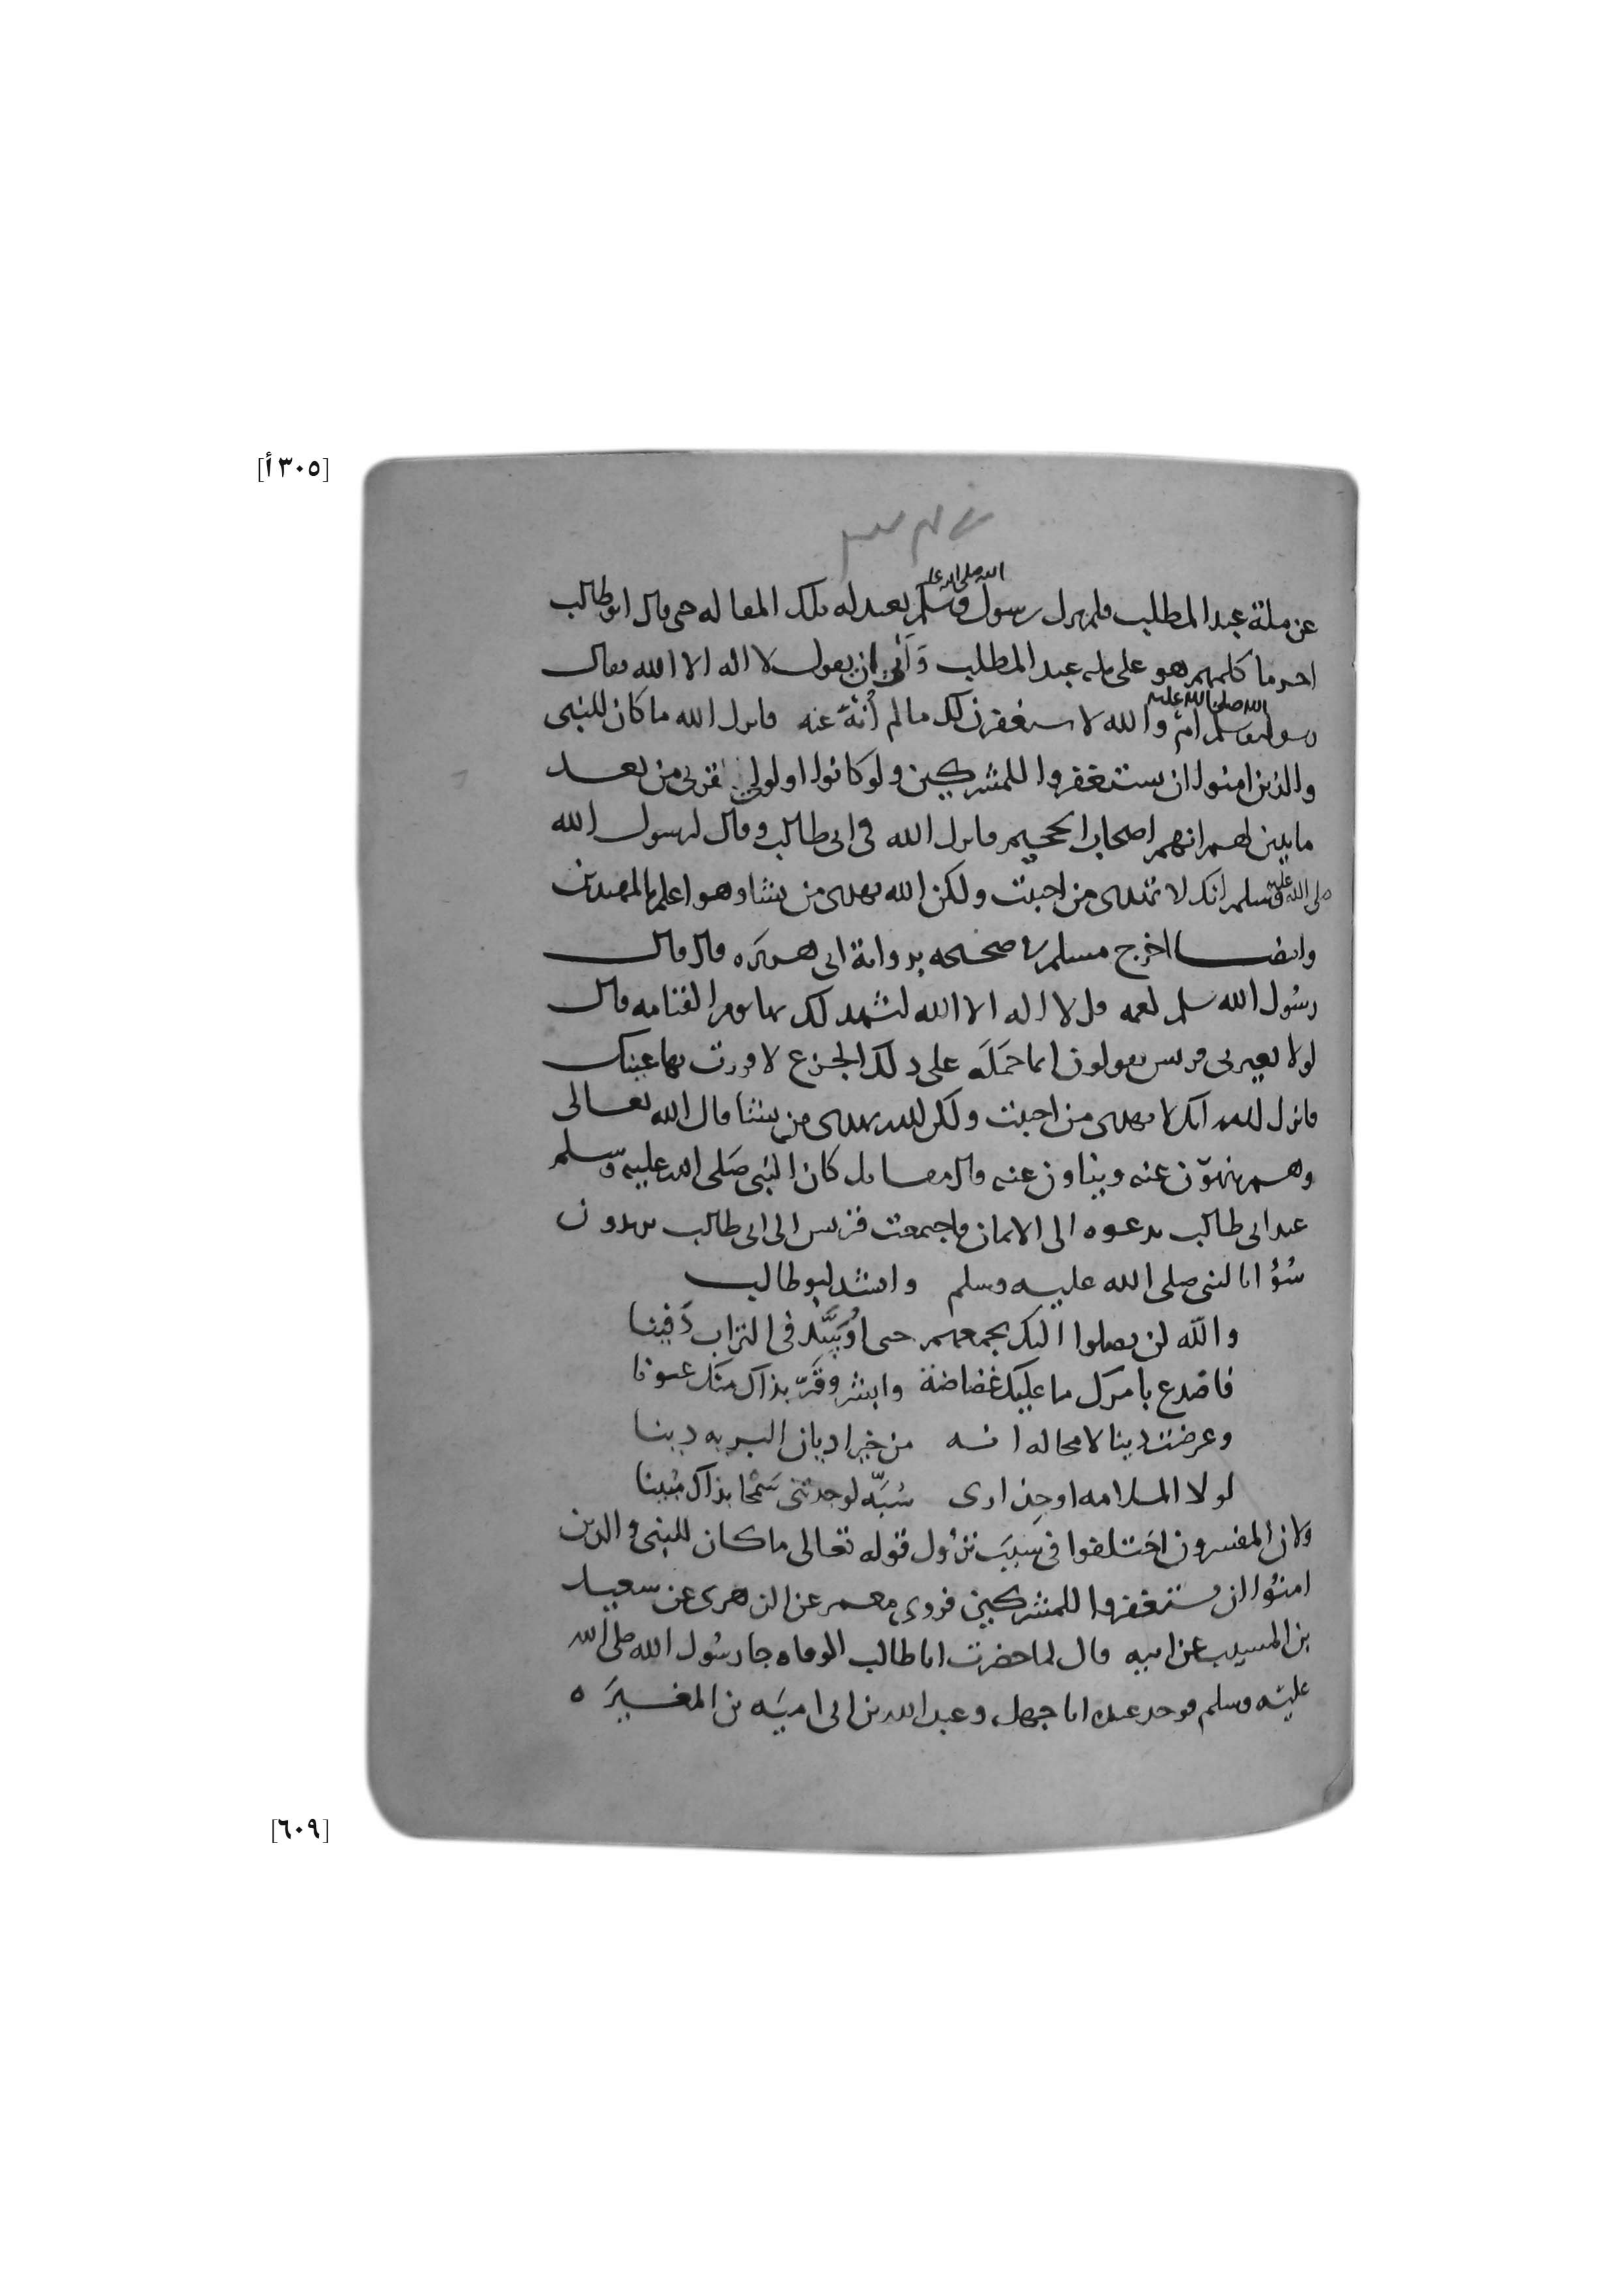 [٣٠٥ أ]
عن ملة عبد المطلب فلم يزل رسول الله صلى الله عليه وسلم يعيد له تلك المقاله حتى قال ابو طالب
اخر ما كلمهم هو على مله عبد المطلب وَأَبى ان يقول لا اله الا الله فقال
رسول الله صلى الله عليه وسلم ام والله لاستغفرن لك ما لم أُنْهَ عنه فانزل الله ما كان للنبى
والذين امنوا ان يستغفروا للمشركين ولو كانوا اولوا قربى من بعد
ما تبين لهم انهم اصحاب الجحيم فانزل الله فى ابى طالب وقال لرسول الله
صلى الله عليه وسلم انك لا تهدى من احببت ولكن الله يهدى من يشا وهو اعلم بالمهتدين
وايضا اخرج مسلم فى صحيحه برواية ابى هريَره قال قال
رسُول الله سلم لعمه قل لا اله الا الله لنشهد لك بها يوم القيامه قال
لولا يعيرنى قريش يقولون انما حَمَلَه على ذلك الجزع لاقررت بها عينك
فانزل الله انك لا تهدى من احببت ولكن الله يهدى من يشا قال الله تعالى
وهم ينهوّن عنه ويناون عنه قال مقاتل كان النبى صَلى الله عليه وسلم
عند ابى طالب يدعوه الى الايمان فاجتمعت قريش الى ابى طالب يريدون
سُؤًا بالنبى صلى الله عليه وسلم وانشد ابو طالب
والله لن يصلوا اليك بجمعهم حتى أُوَسَّد فى التراب دَفينا
فاصدع بامرك ما عليك غضاضة وابشر وقَرّ بذاك منك عيونا
وعرضت دينا لا محاله انه من خير اديان البريه دينا
لولا الملامه او حِذارى سُبّه لوجدتنى سَمْحا بذاك مُبينا
ولان المفسرون اختلفوا فى سَببَ نزُول قوله تعالى ما كان للنبى والدين
امنُوا ان يستغفروا للمشركين فروى معمر عن الزهرى عن سعيد
بن المسيب عن ابيه قال لما حضرت ابا طالب الوفاه جا رسُول الله صلى الله
عليه وسلم فوجد عنده ابا جهل وعبد الله بن ابى اميَه بن المغيرَه
[٦٠٩]